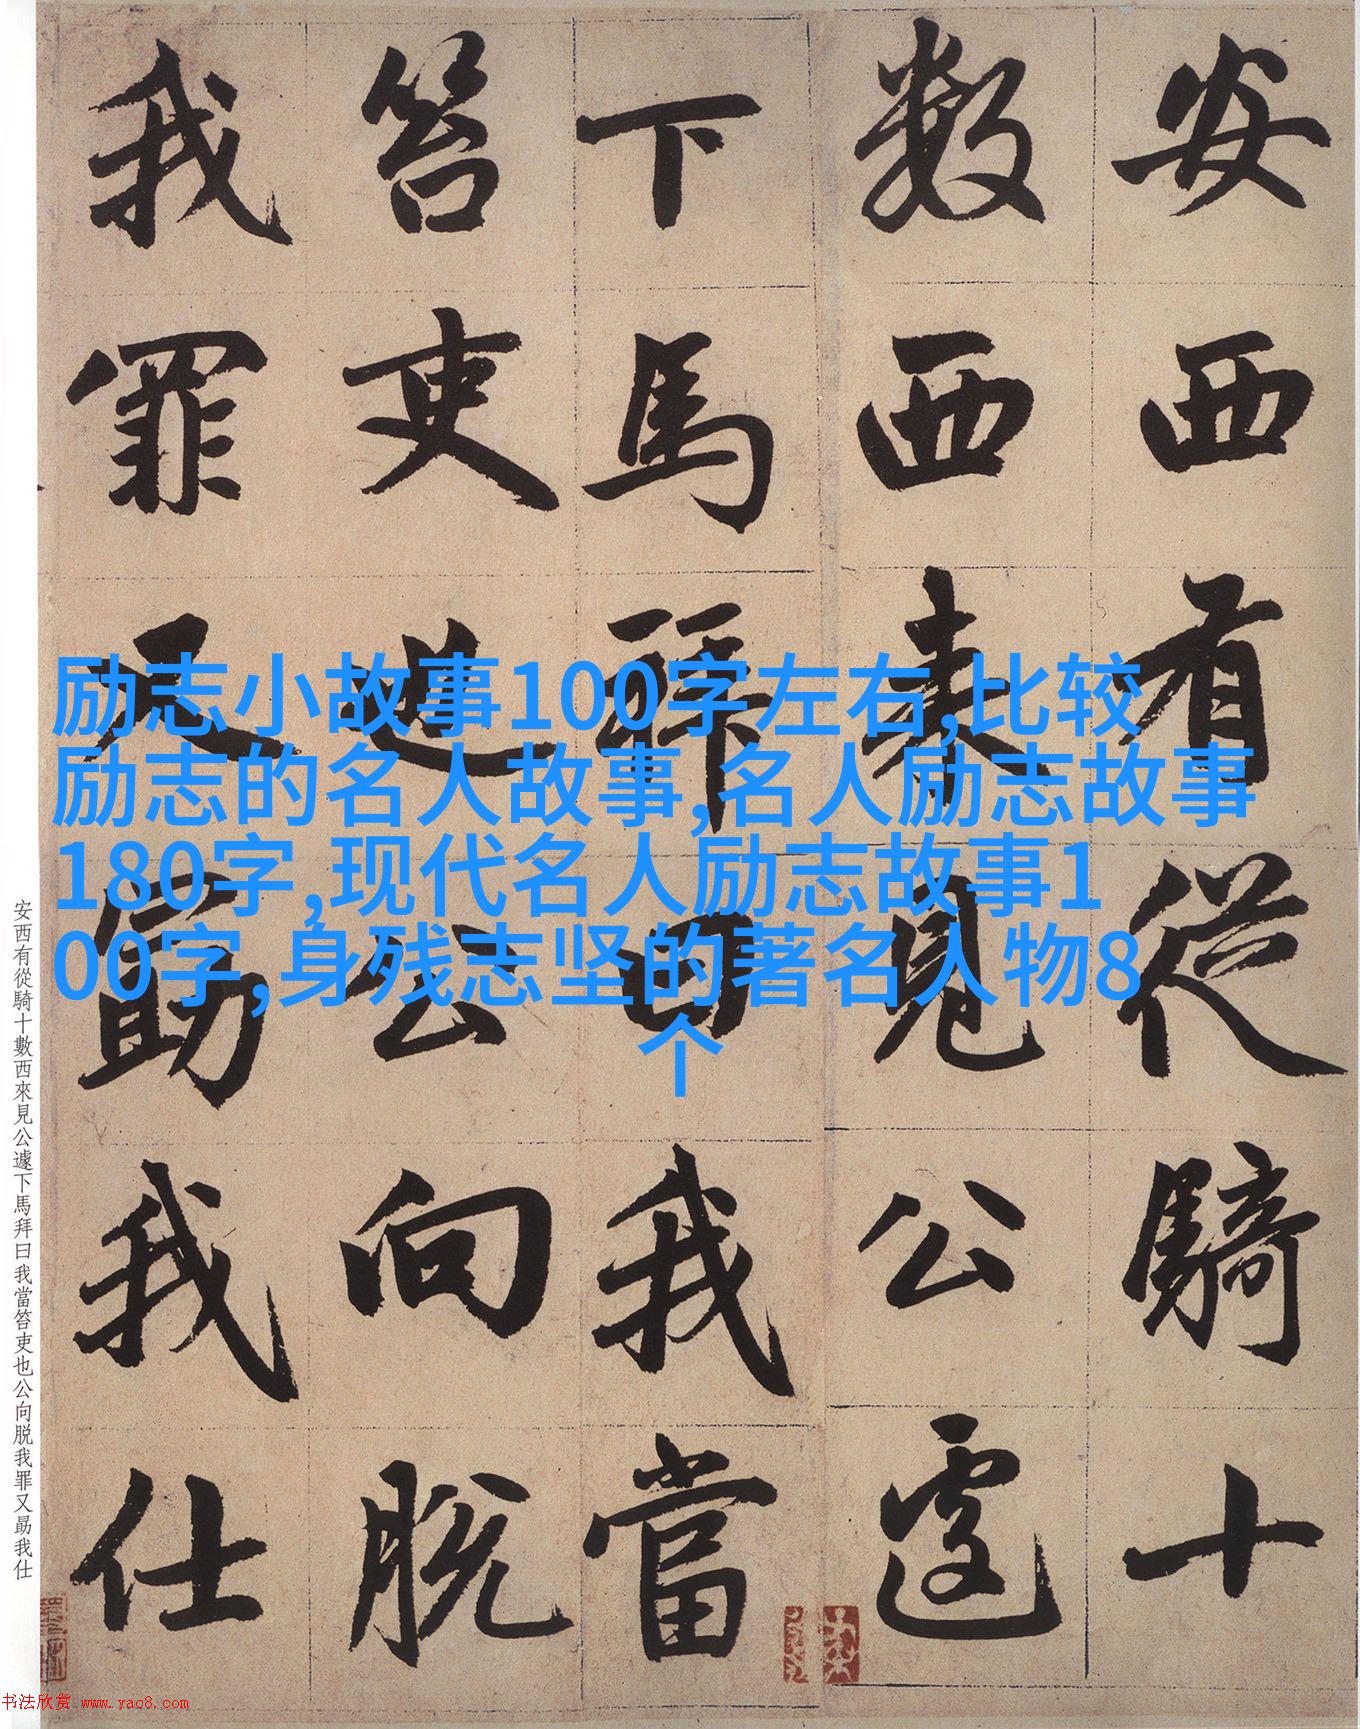 安西有從騎十
數西來見公遽
下馬拜曰我當
笞吏也公向脫
我罪又勗我仕
励志小故事100字左右,比较
励志的名人故事,名人励志故事
180字,现代名人励志故事1
00字,身残志坚的著名人物8
个
安西有從騎十數西來見公遽下馬拜曰我當笞吏也公向脱我罪又勗我仕
书法欣赏 www.yac8.com